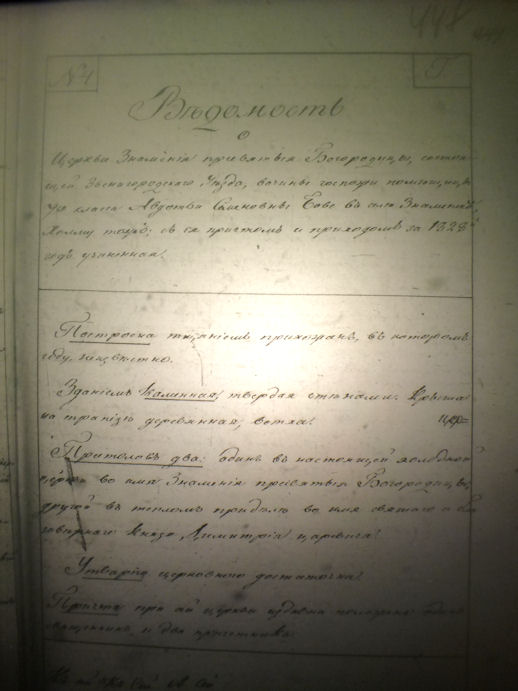 448
№ 4
Г.
Вѣдомость
О
Церкви Знаменія пресвятыя Богородицы, состоя-
щей Звенигородскаго Уѣзда, вотчины госпожи помѣщицы
класса Авдотьи Семеновны въ селѣ Знаменскѣ,
Холму тожъ; съ ея причтомъ и приходомъ за 1828й
годъ учиненная.
Построена тщаніемъ прихожанъ, въ которомъ
году, неизвѣстно.
Зданіемъ каменная, твердая стѣнами. Крыша
на трапезѣ деревянная, ветха.
Престоловъ два: одинъ въ настоящей холодной
церкви во имя Знаменія пресвятыя Богородицы,
другой въ тепломъ придѣлѣ во имя святаго
благовѣрнаго Князя Димитрія царевича.
Утварію церковною достаточна.
Причта при сей церкви издавна положено одинъ
священникъ и два причетника.